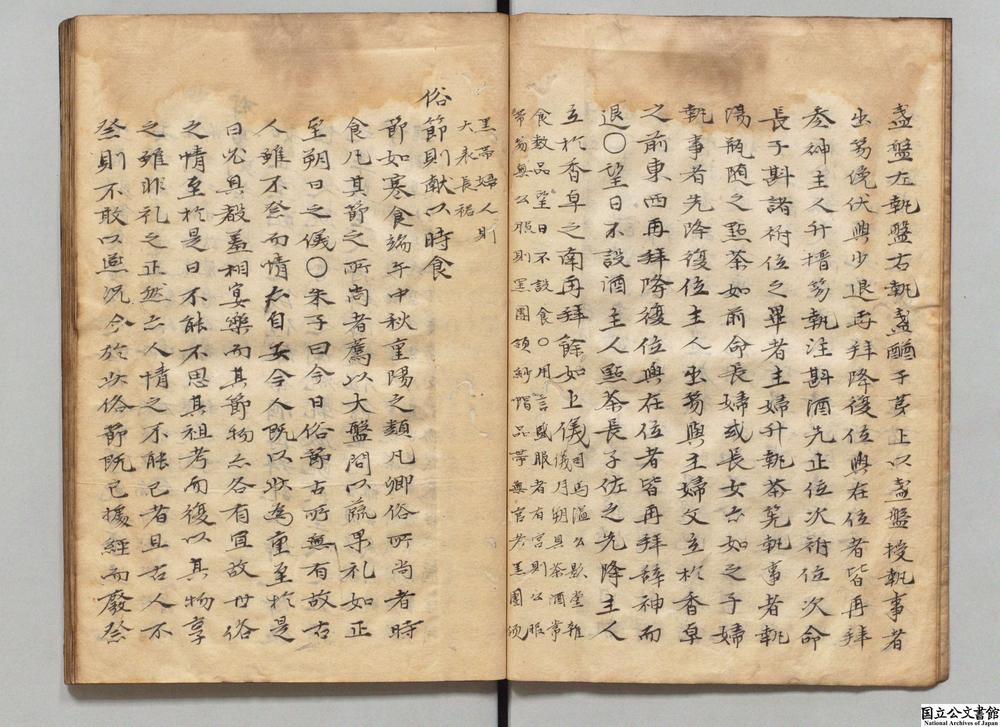 盞盤左執盤右執盞酹于茅上以盞盤授執事者
出笏俛伏興少退再拜降復位與在位者皆再拜
参神主人升搢笏執注斟酒先正位次祔位次命
長子斟諸祔位之畢者主婦升執茶筅執事者執
湯瓶随之點茶如前命長婦或長女亦如之子婦
執事者先降復位主人出笏與主婦父立於香卓
之前東西再拜降復位與在位者皆再拜辞神而
退〇望日不設酒主人點茶長子佐之先降主人
立於香卓之南再拜餘如上儀司馬温公影堂雜儀月朔具茶酒常
食数品望日不設食〇用言盛服者有官則公服
帯笏無公服則黒團領紗帽品帯無官者黒團領
黒帯婦人則
大衣長裙
俗節則献以時食
節如寒食端午中秋重陽之類凡卿俗所尚者時
食凡其節之所尚者薦以大盤間以蔬果礼如正
至朔日之儀〇朱子曰今日俗節古所無有故古
人雖不祭而情亦自安今人既以此為重至於是
日必具殽羞相宴樂而其節物亦各有宜故世俗
之情至於是日不能不思其祖考而復以其物享
之雖非礼之正然亦人情之不能已者且古人不
祭則不敢以燕況今於此俗節既已據經而廢祭
国立公文書館
National Archives of Japan